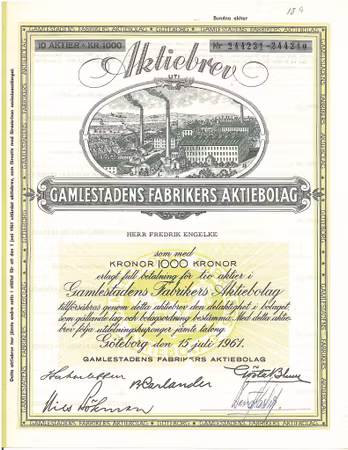 Bundna aktier
189
GAMLESTADENS FABRIKERS AKTIEBOLAG · GÖTEBORG · GAMLESTADENS FABRIKERS AKTIEBOLAG
10 AKTIER - KR 1000
Nr 244231-244240
Aktiebrev
UTI
GAMLESTADENS FABRIKERS AKTIEBOLAG
HERR FREDRIK ENGELKE
som med
KRONOR 1000 KRONOR
erlagt full betalning för tio aktier i
Gamlestadens Fabrikers Aktiebolag
tillförsäkras genom detta aktiebrev den delaktighet i bolaget,
som gällande lag och bolagsordning bestämma. Med detta aktie-
brev följa utdelningskuponger jämte talong.
Göteborg den 15 juli 1961.
GAMLESTADENS FABRIKERS AKTIEBOLAG
Nils Röhman
GAMLESTADENS FABRIKERS AKTIEBOLAG · GÖTEBORG · GAMLESTADENS FABRIKERS AKTIEBOLAG